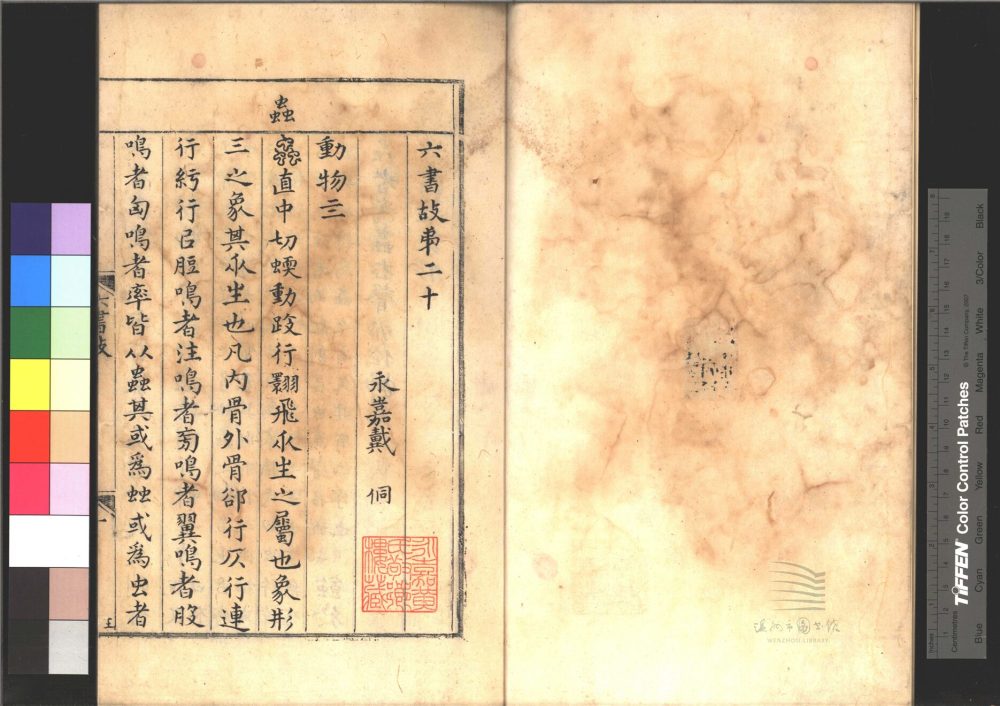 蟲
六書故弟二十
永嘉戴 侗
動物三
蟲直中切蝡動跂行翾飛㲽生之屬也象形
三之象其㲽生也凡内骨外骨郤行仄行連
行紆行㠯脰鳴者注鳴者㫄鳴者翼鳴者股
鳴者匈鳴者率皆从蟲其或爲䖵或爲虫者
六書故
一
王
永嘉黃氏敬鄉樓藏
温州市圖書馆
WENZHOU LIBRARY
TIFFEN Color Control Patches
© The Tiffen Company, 2007
Blue Cyan Green Yellow Red Magenta White 3/Color Black
Inches
Centimetres